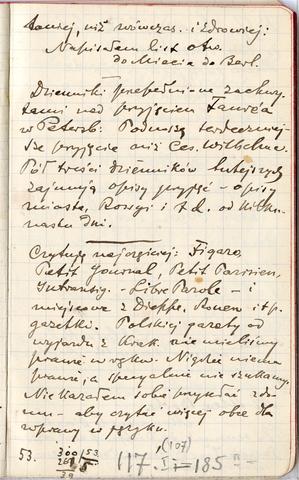 taniej, niż wówczas. i zdrowiej:
Napisałem list otw.
do Miecia do Berl.
Dzienniki przepełnione zachwy-
tami nad przyjęciem Faure'a
w Petersb: Podnoszą serdeczniej-
sze przyjęcie niż Ces. Wilhelma.
Pół treści dzienników tutejszych
zajmują opisy przyjęć – opisy
miasta, Rossyi i t d. od kilku-
nastu dni.
Czytuję najczęściej: Figaro,
Petit Journal, Petit Parisien,
Intransig. – Libre Parole – i
miejscowe z Dieppe, Rouen itp.
gazetki. Polskiej gazety od
wyjazdu z Krak. nie mieliśmy
prawie w ręku. Nigdzie niema
prawie, a specyalnie nie szukamy.
Nie kazałem sobie przysłać z do-
mu – aby czytać więcej obce dla
wprawy w języku.
53. 300 53.
117, (107)
I = 185